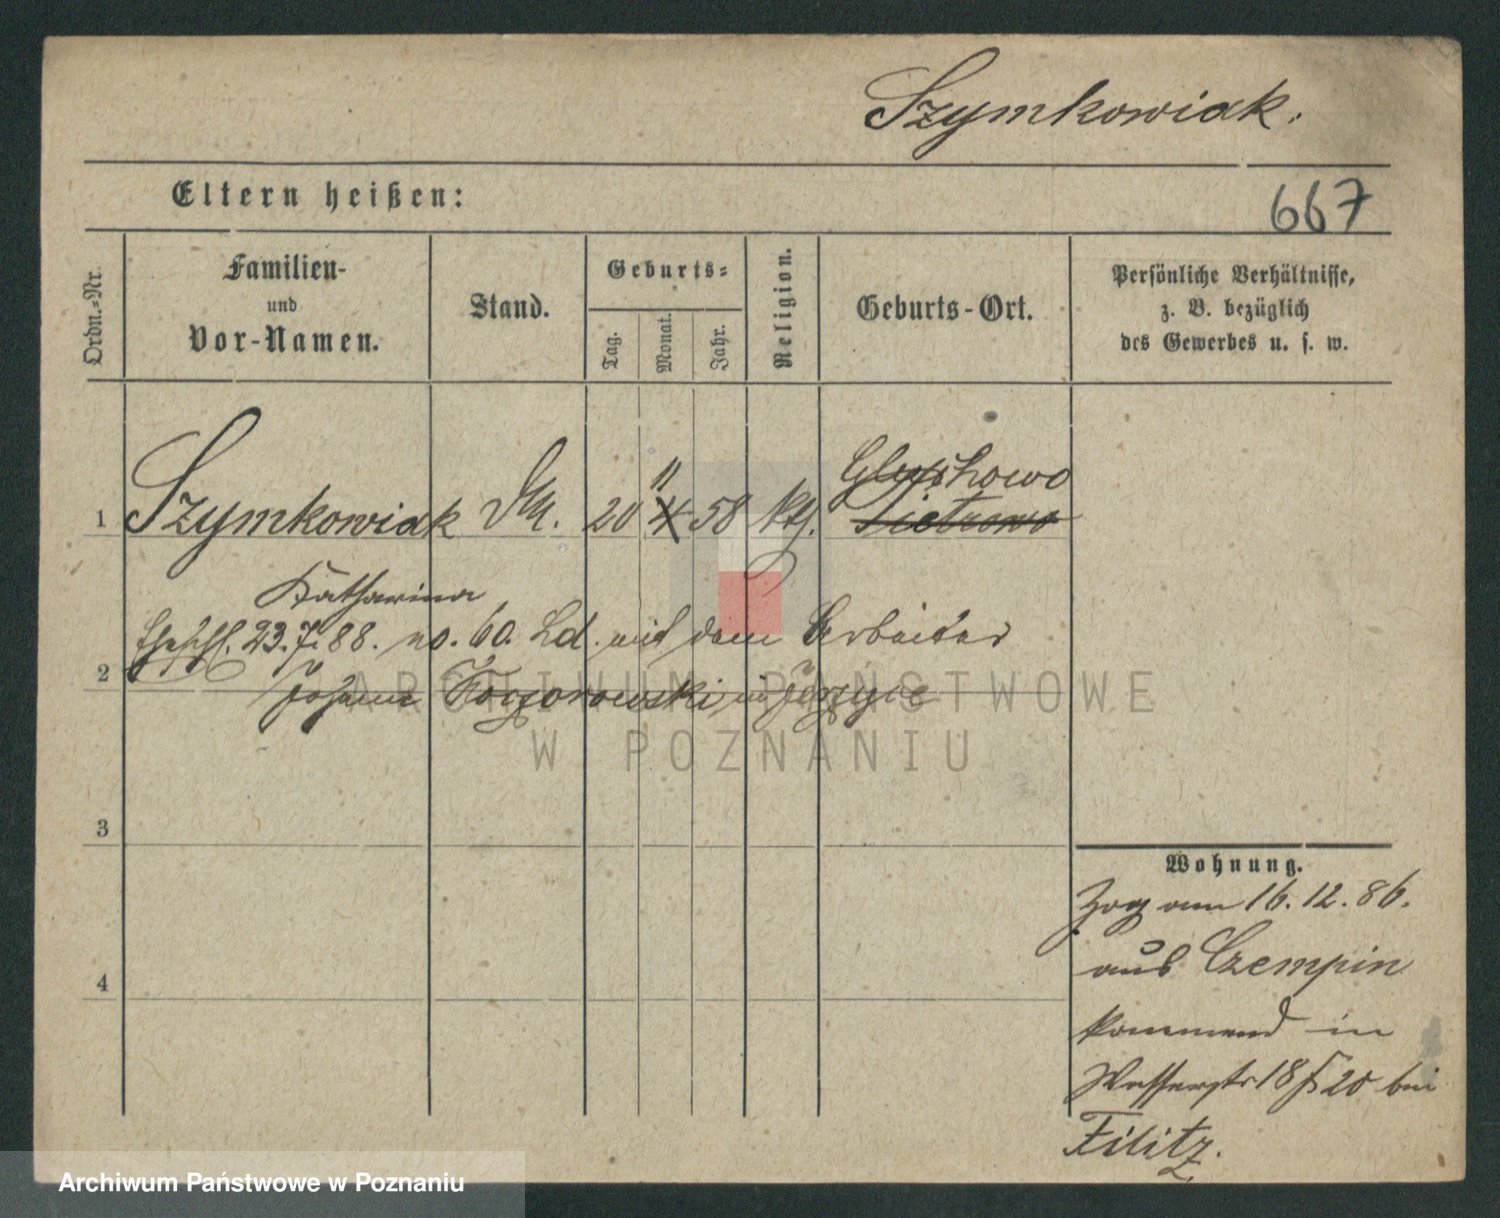 Szymkowiak.
Eltern heißen:
667
Ordn.-Nr.
Familien-
und
Vor-Namen.
Stand.
Geburts-
Tag.
Monat.
Jahr.
Religion.
Geburts-Ort.
Persönliche Verhältnisse,
z. B. bezüglich
des Gewerbes u. s. w.
1 Szymkowiak 20 11 4 58 kth. Gluchowo
Pietrowo
Katharina
Eheschl. 23.7.88. no. 60. Ld. mit dem Arbeiter
2 Johann Koczorowski in Jerzyce
ARCHIWUM PAŃSTWOWE
W POZNANIU
3
Wohnung.
Zog am 16.12.86.
aus Czempin
4
kommend in
Wasserstr 18/20 bei
Filitz.
Archiwum Państwowe w Poznaniu